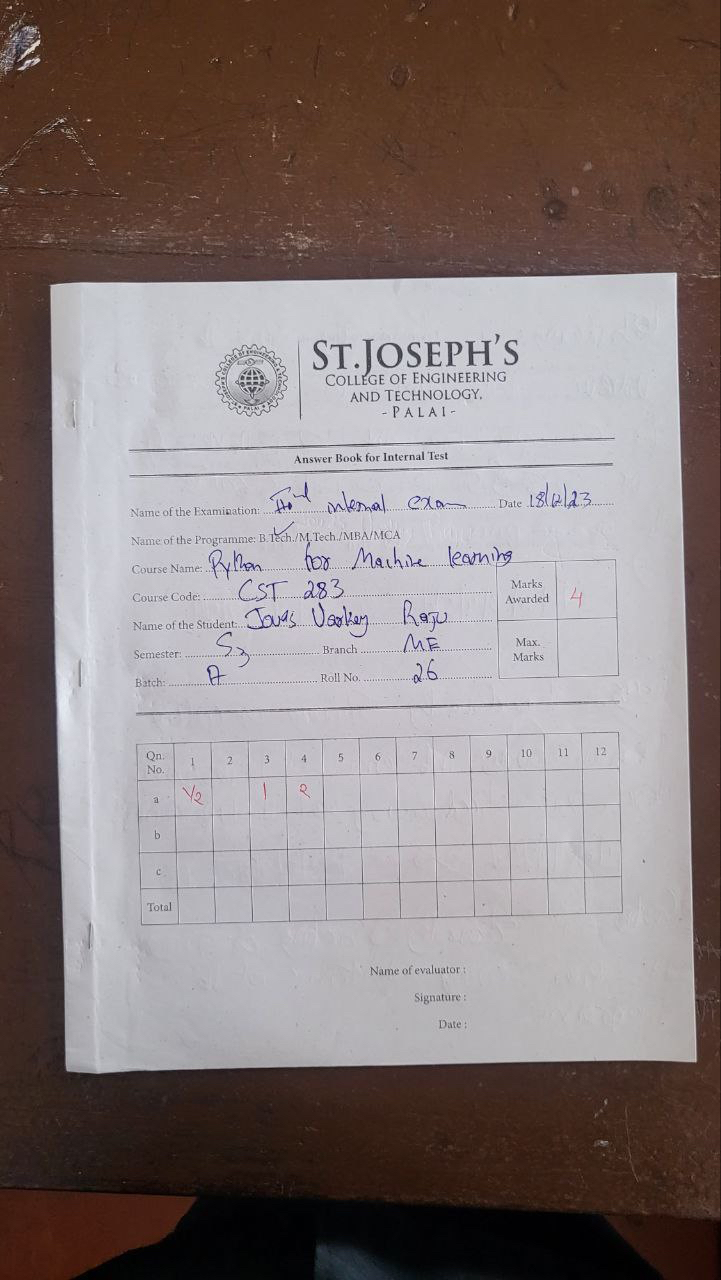 ST.JOSEPH'S
COLLEGE OF ENGINEERING
AND TECHNOLOGY,
- PALAI -
Answer Book for Internal Test
Name of the Examination: IInd internal exam Date 18/12/23
Name of the Programme: B.Tech./M.Tech./MBA/MCA
Course Name: Python for Machine learning
Course Code: CST 283
Marks Awarded 4
Name of the Student: Varkey Raju
Max. Marks
Semester: S3 Branch ME
Batch: A Roll No. 26
Qn. No. 1 2 3 4 5 6 7 8 9 10 11 12
a 1/2 1 2
b
c
Total
Name of evaluator :
Signature :
Date :